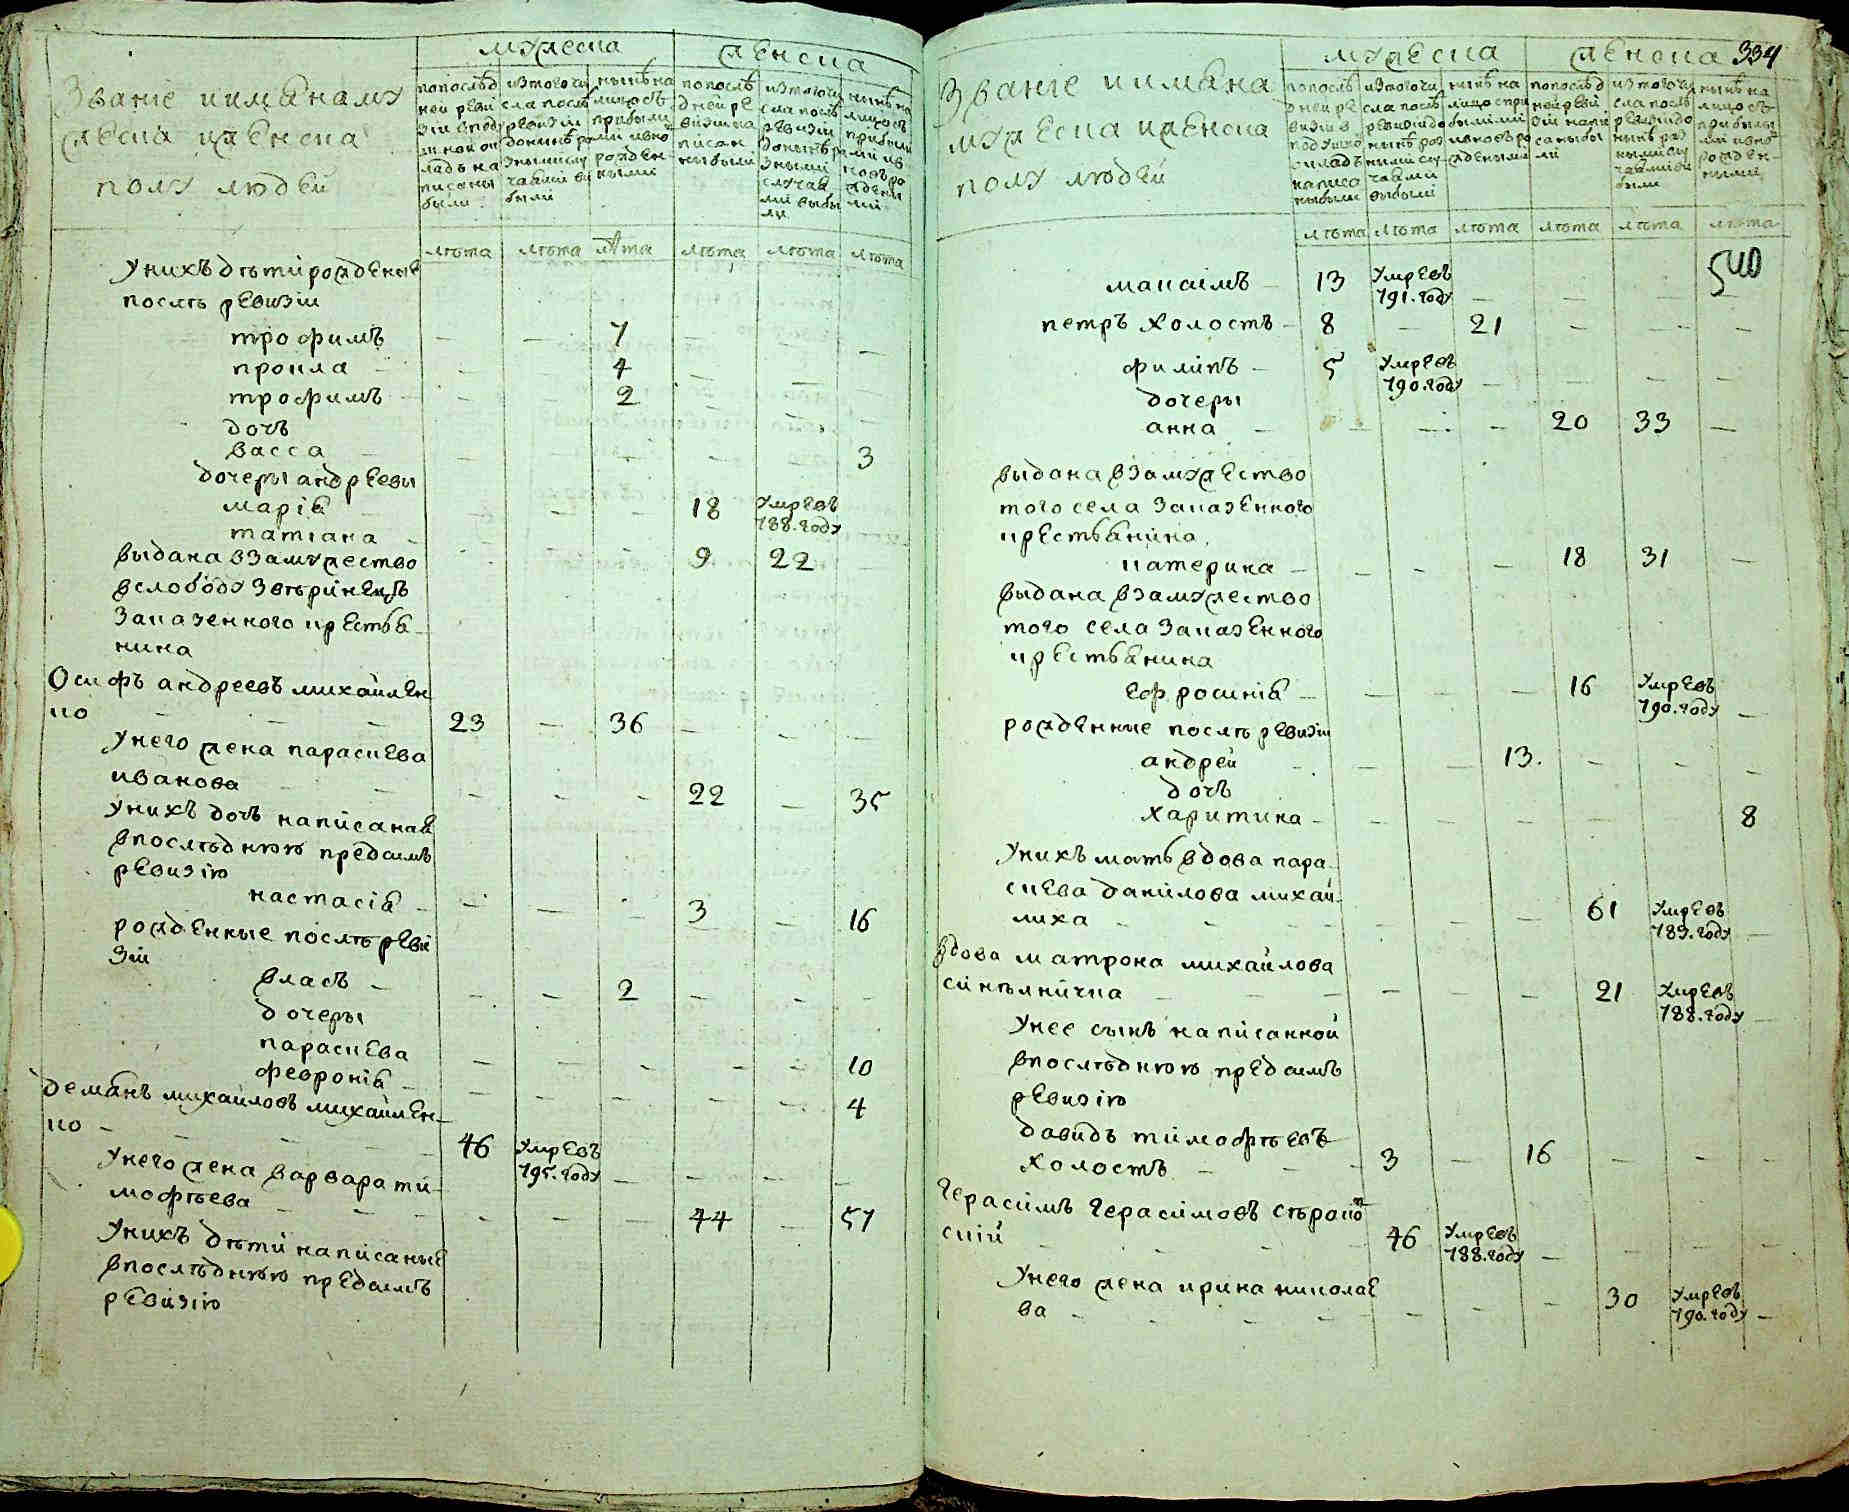 званїе иимянаму
жеска иженска
полу людей
мужеска
женска
попослѣд
ней реви
зїи вподу
шной ок
ладъ на
писаны
были
изтого чи
сла послѣ
ревизїи
донынѣ ра
зными слу
чаями вы
были
нынѣ на
лицо съ
прибыли
ми ивно
рожден
ными
попослѣ
дней ре
визїи на
писан
ны были
изтого чи
сла послѣ
ревизїи
донынѣ ра
зными
случая
ми выбы
ли
нынѣ на
лицо съ
прибыли
ми ив
новь ро
ждены
ми
лѣта лѣта лѣта лѣта лѣта лѣта
унихъ дѣти рожденые
послѣ ревизїи
трофимъ — — 7 — — —
прокла — — 4 — — —
трофимъ — — 2 — — —
дочь
васса — — — — — 3
дочеры андреевы
марїя — — — 18 умре въ
788. году
татїана
выдана взамужество 9 22 —
вслободу звѣринецъ
заказенного крестья
нина
Осифъ андреевъ михайлен
ко — — — 23 — 36 — — —
унего жена параскева
иванова — — — — — 22 — 35
унихъ дочь написаная
впослѣднюю предсимъ
ревизїю
настасїя — — — — 3 — 16
рожденные послѣ реви
зїи
власъ — — — 2 — — —
дочеры
параскева — — — — — 10
феоронїя — — — — — — 4
демянъ михайловъ михайлен
ко — — — — 46 умре въ
795. году — — — —
унего жена варвара ти
мофѣева — — — — — — 44 — 57
унихъ дѣти написаные
впослѣднюю предсимъ
ревизїю
334
званїе иимяна
мужеска иженска
полу людей
мужеска
женска
попослѣ
дней ре
визїи в
подушно
окладъ
написа
ны были
изтого чи
сла послѣ
ревизїи до
нынѣ раз
ными слу
чаями
выбыли
нынѣ на
лицо при
былыми
ивновь ро
ждеными
попослѣд
ней реви
зїи напи
саны бы
ли
изтого чи
сла послѣ
ревизїи до
нынѣ раз
ными слу
чаями вы
были
нынѣ на
лицо съ
прибылы
ми ивно
рожден
ными
лѣта лѣта лѣта лѣта лѣта лѣта
540
максимъ — 13 умре въ
791. году — — — —
петръ холостъ — 8 — 21 — — —
филипъ — 5 умре въ
790. году — — — —
дочеры
анна — — — — 20 33 —
выдана взамужество
того села заказенного
крестьянина
катерина — — — — 18 31 —
выдана взамужество
того села заказенного
крестьянина
ефросинїя — — — — 16 умре въ
790. году —
рожденные послѣ ревизїи
андрей — — — 13. — — —
дочь
харитина — — — — — — 8
унихъ мать вдова пара
скева данилова михай
лиха — — — — — — 61 умре въ
789. году —
вдова матрона михайлова
синѣлничка — — — — — — 21 умре въ
788. году —
унее сынъ написанной
впослѣднюю предсимъ
ревизїю
давидъ тимофѣевъ
холостъ — — — 3 — 16 — — —
герасимъ герасимовъ сѣроко
скїй — — — — 46 умре въ
788. году — — — —
унего жена ирина николае
ва — — — — — — — 30 умре въ
790. году —